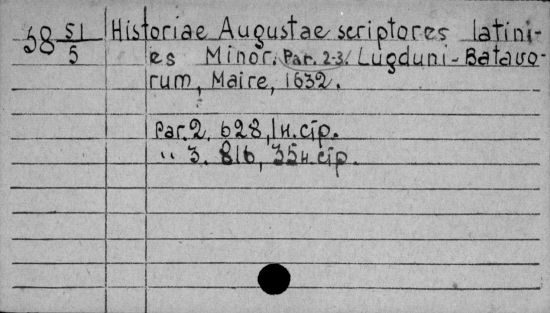 38 51/5 Historiae Augustae scriptores latini-
es Minor. Par. 2-3. Lugduni-Batavo-
rum, Maire, 1632.
Par. 2. 628, 1 н. стр.
" 3. 816, 35 н. стр.